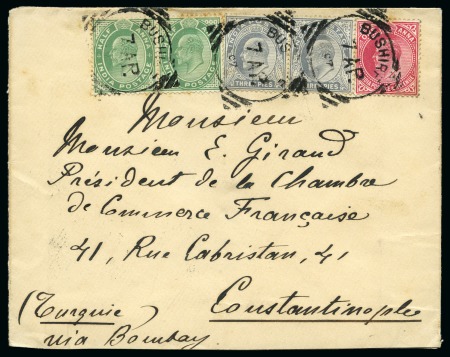 HALF ANNA
INDIA POSTAGE
THREE PIES
THREE PIES
BUSHIRE
7 AP.
BUS
7 AP
BUSHIRE
7 AP.
Monsieur
Monsieur E. Giraud
Président de la Chambre
de Commerce Française
41, Rue Cabristan, 41
Constantinople
(Turquie
via Bombay